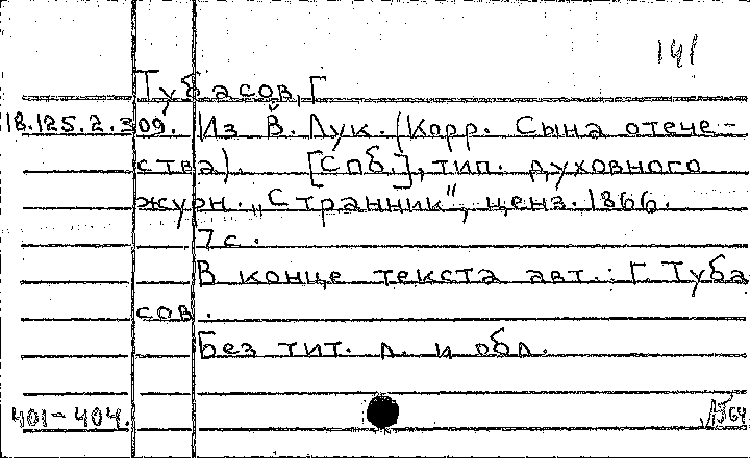 141
Тубасов, Г
18.125.2.309. Из В. Лук. (Корр. Сына отече-
ства). [Спб.], тип. духовного
журн. „Странник", ценз. 1866.
7 с.
В конце текста авт.: Г. Туба
сов.
Без тит. л. и обл.
401-404.